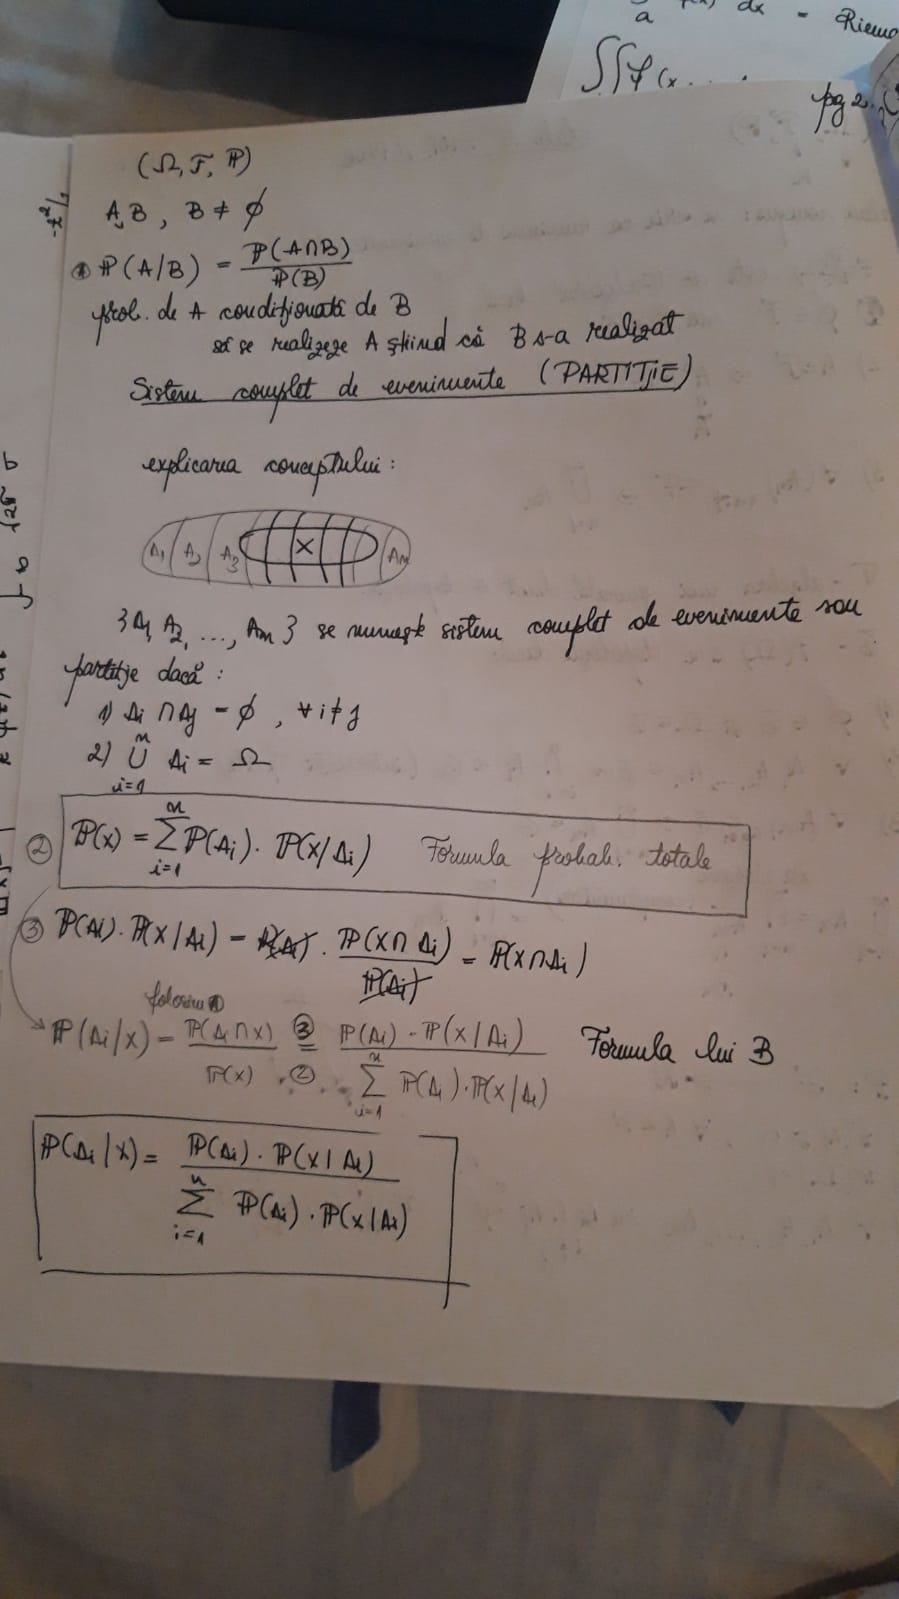 a dx = Riem
∫∫ f(x
pg 2.
(Ω, F, ℙ)
A, B , B ≠ ∅
① ℙ(A/B) = ℙ(A∩B) / ℙ(B)
prob. de A condiționată de B
să se realizeze A știind că B s-a realizat
Sistem complet de evenimente (PARTIȚIE)
explicarea conceptului :
A1 A2 A3 X An
{A1, A2, ..., An} se numește sistem complet de evenimente sau
partiție dacă :
1) Ai ∩ Aj = ∅ , ∀ i ≠ j
2) n ∪ i=1 Ai = Ω
② ℙ(X) = n Σ i=1 ℙ(Ai) · ℙ(X/Ai) Formula probab. totale
③ ℙ(Ai) · ℙ(X/Ai) = ℙ(Ai) · ℙ(X∩Ai) / ℙ(Ai) = ℙ(X∩Ai)
folosim ①
ℙ(Ai/X) = ℙ(Ai∩X) / ℙ(X) ③ = ② ℙ(Ai) · ℙ(X/Ai) / n Σ i=1 ℙ(Ai) · ℙ(X/Ai) Formula lui B
ℙ(Ai/X) = ℙ(Ai) · ℙ(X|Ai) / n Σ i=1 ℙ(Ai) · ℙ(X|Ai)